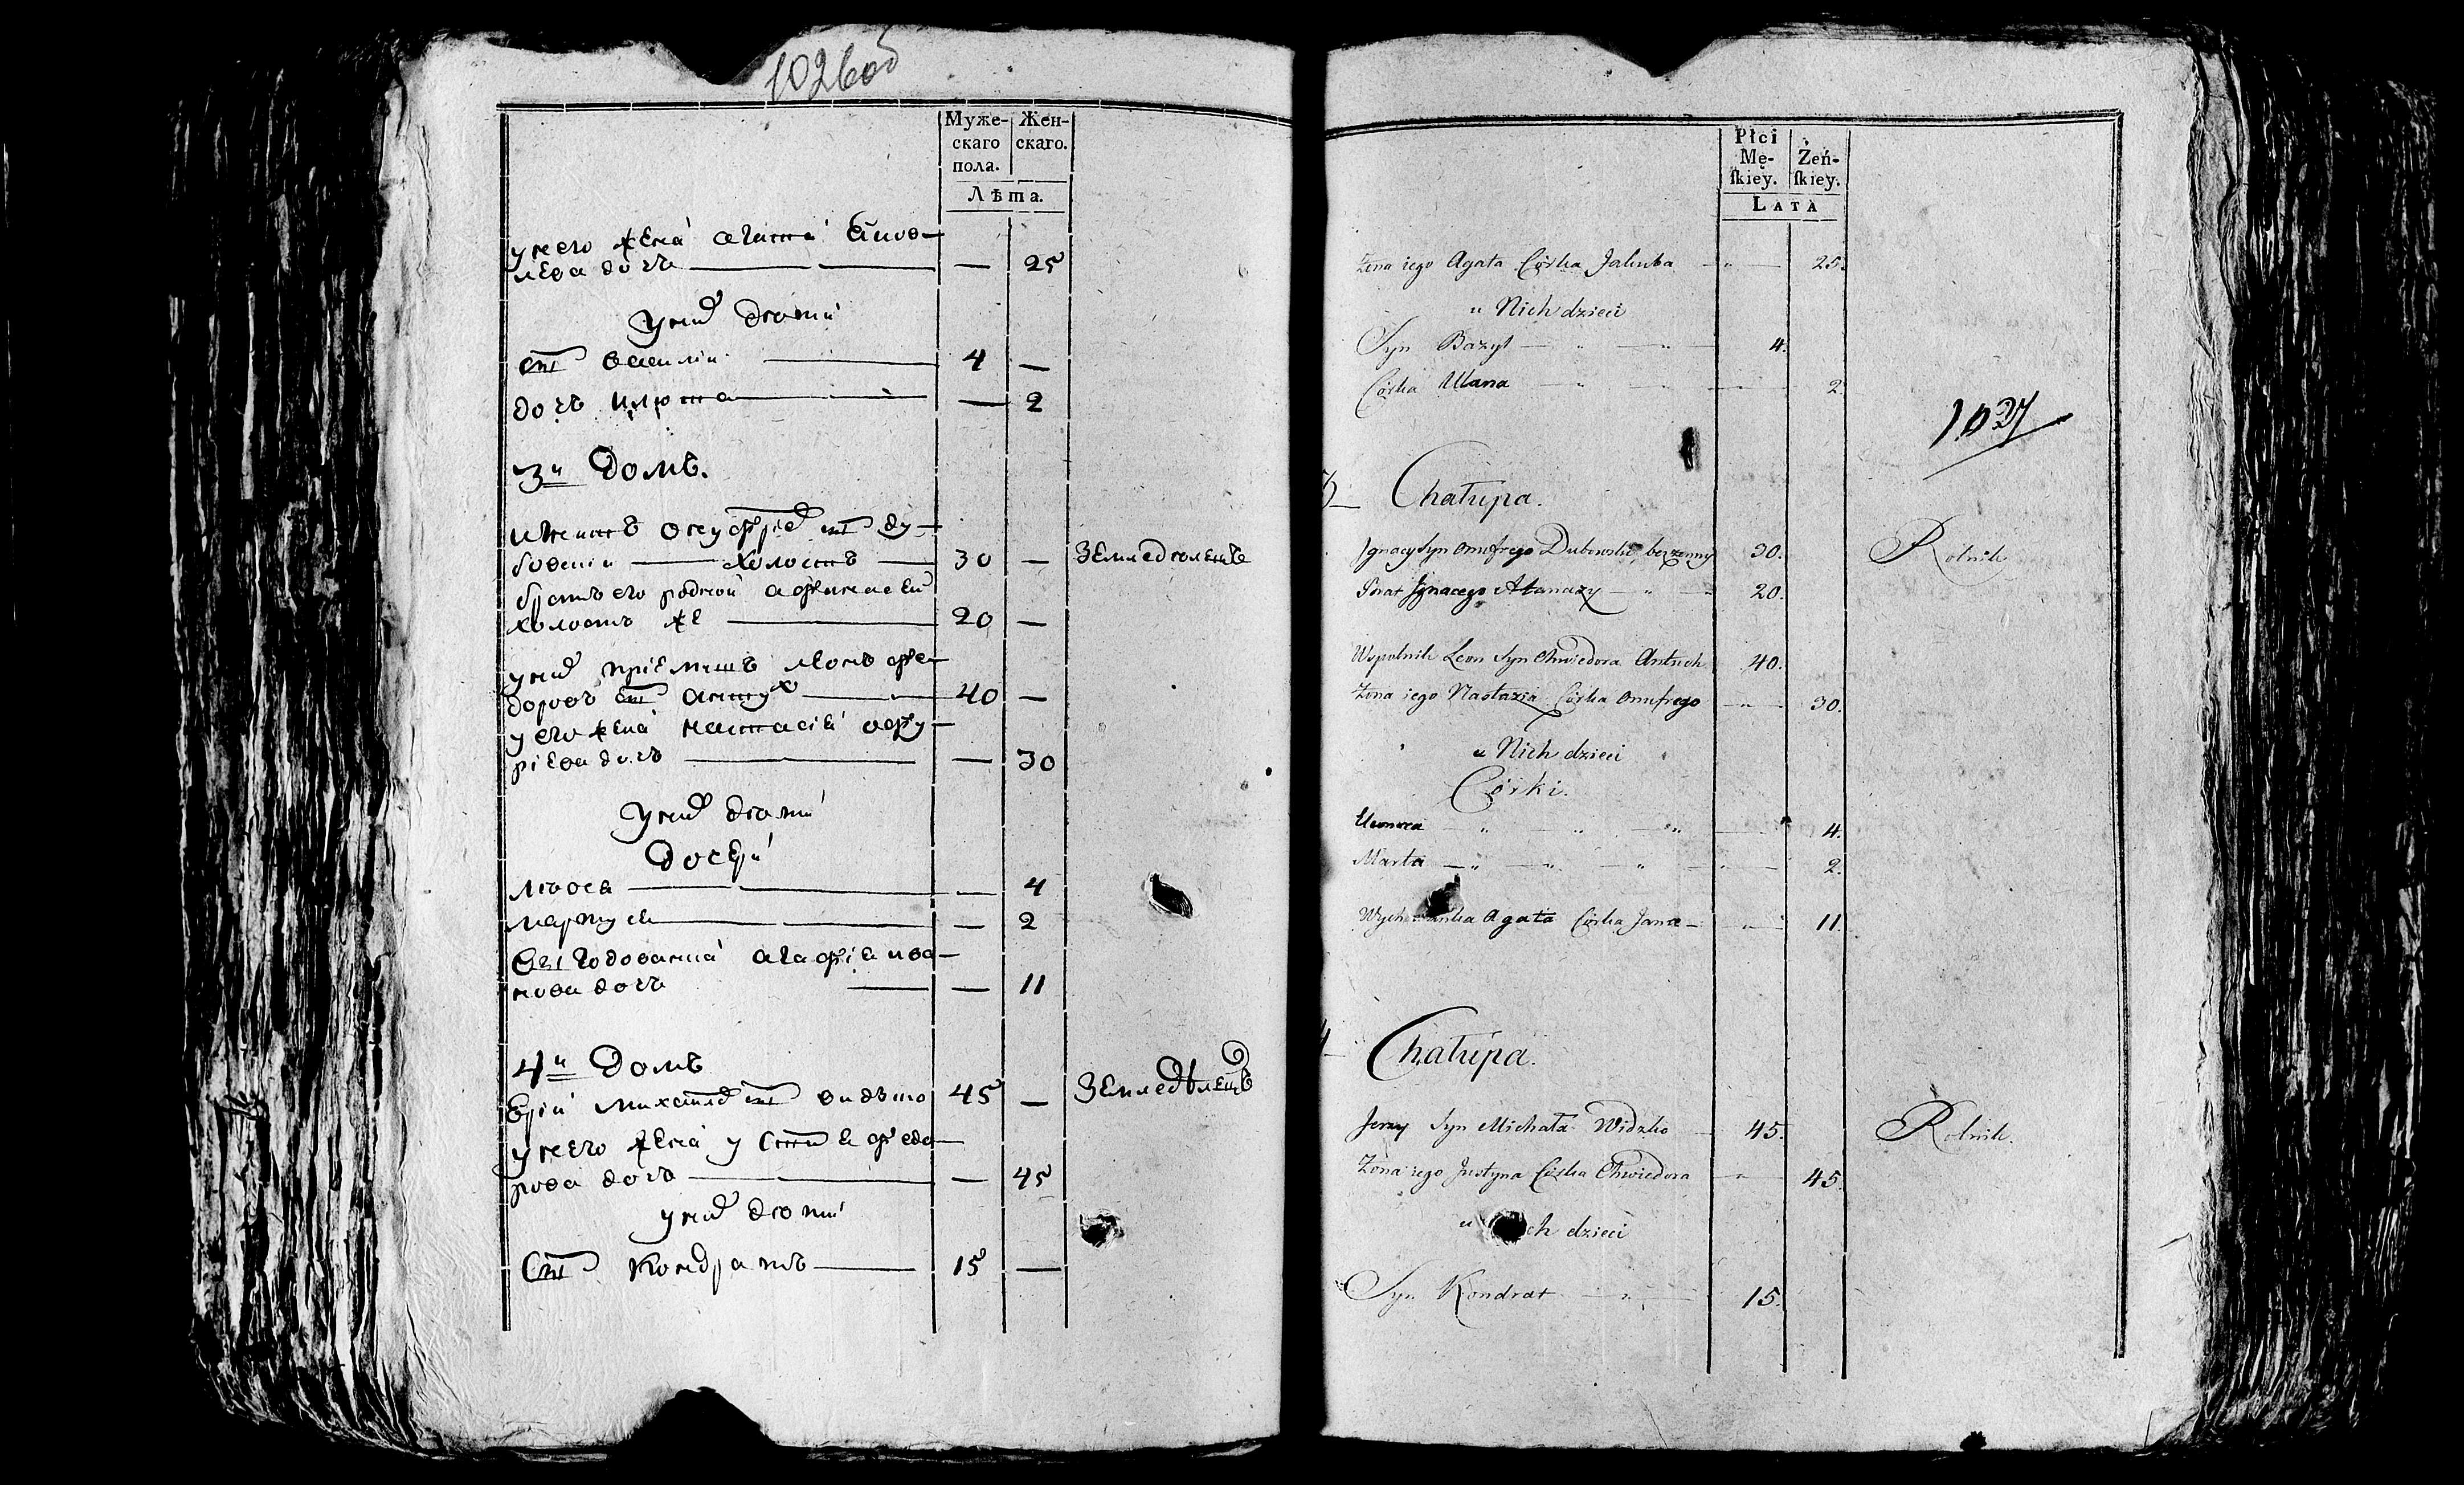 1026об
Муже-
скаго
пола.
Жен-
скаго.
Лѣта.
унего жена агата
лева дочъ — — 25
униx дѣти
сынъ василии — 4 —
дочъ — — 2
3й Домъ.
Игнатъ онуфрiев сынъ ду-
бовскiи — холостъ — 30 — Земледѣлецъ
братъ его родной афанасей
холостъ же — 20 —
уних прiемышъ леонъ фе-
доровъ сынъ антух — 40 —
у его жена настасiя
рiева дочъ — — 30
уних дѣти
дочери
— — 4
— — 2
агафiя ива-
нова дочъ — — 11
4й Домъ
Ерiи михаилов сынъ видзко 45 — Земледѣлецъ
унего жена устиня федо-
рова дочъ — — 45
уних дѣти
Сынъ Кондратъ — 15 —
Płci
Mę-
ſkiey.
Żeń-
ſkiey.
LATA
Żona iego Agata Córka Jakuba — " — 25.
u Nich dzieci
Syn Bazyl — " — " — 4.
Córka Ulana — " — — — 2
1027
3 Chałupa.
Ignacy Syn Onufrego Dubowski bezżenny 30. Rolnik
Brat Ignacego Atanazy — " — 20.
Wspolnik Leon Syn Chwiedora Antuch 40.
Żona iego Nastazia Córka Onufrego — " — 30.
u Nich dzieci
Córki.
Eleonora — " — " — " — 4.
Marta — " — " — " — " — 2.
Agata Córka Jana — " — 11.
4 Chałupa.
Jerzy Syn Michała Widzko — 45. Rolnik.
Żona iego Justyna Córka Chwiedora — " — 45.
u ch dzieci
Syn Kondrat — " — 15.